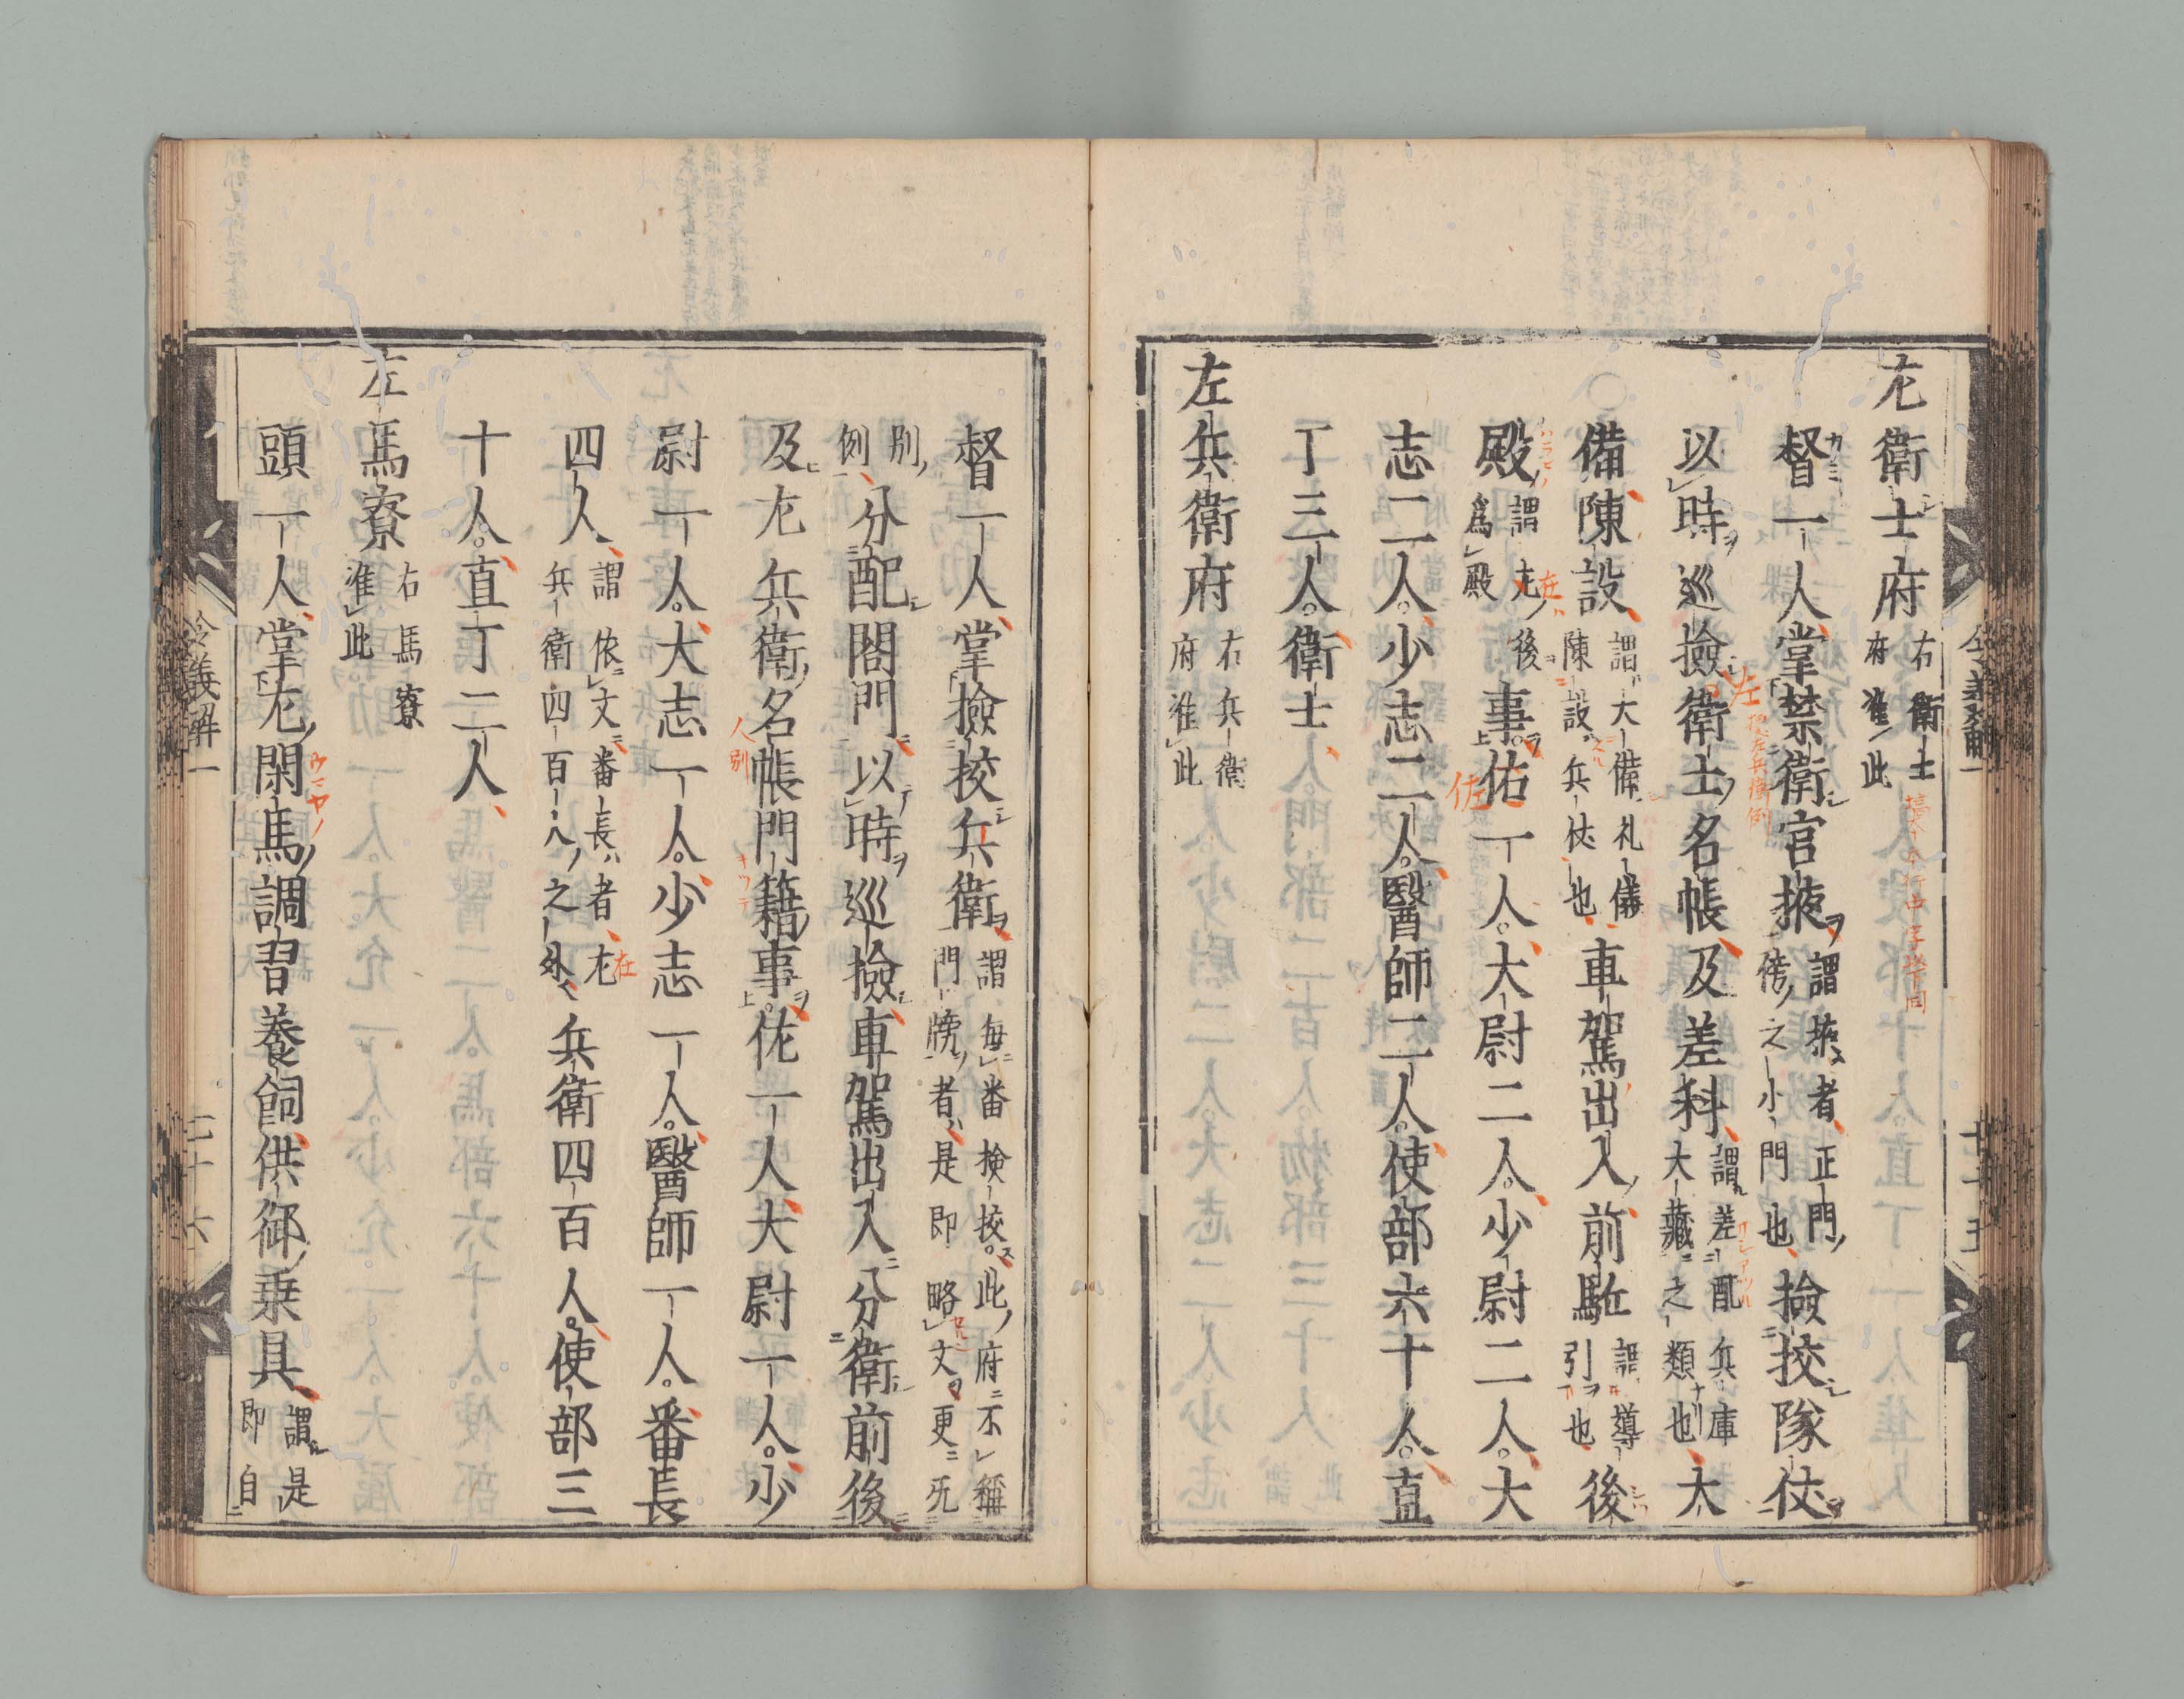 左衛士府 右衛士府准此
督一人掌禁衛宮掖謂掖者正門傍之小門也撿挍隊仗
以時巡撿衛士名帳及差科謂差配兵庫大藏之類也大
備陳設謂大備礼儀陳設兵仗也車駕出入前駈謂導引也後
殿謂在後為殿事佑一人大尉二人少尉二人大
志二人少志二人醫師二人使部六十人直
丁三人衛士
左兵衛府 右兵衛府准此
令義解一
七十五
督一人掌撿挍兵衛謂毎番検挍此府不稱門牓者是即略文更无
別例分配閤門以時巡撿車駕出入分衛前後
及左兵衛名帳門籍事佐一人大尉一人少
尉一人大志一人少志一人醫師一人番長
四人謂依文番長者在兵衛四百人之外兵衛四百人使部三
十人直丁二人
左馬寮 右馬寮准此
頭一人掌左閑馬調習養飼供御乗具謂是即自
令義解一
七十六
左
佐
在
人別
在